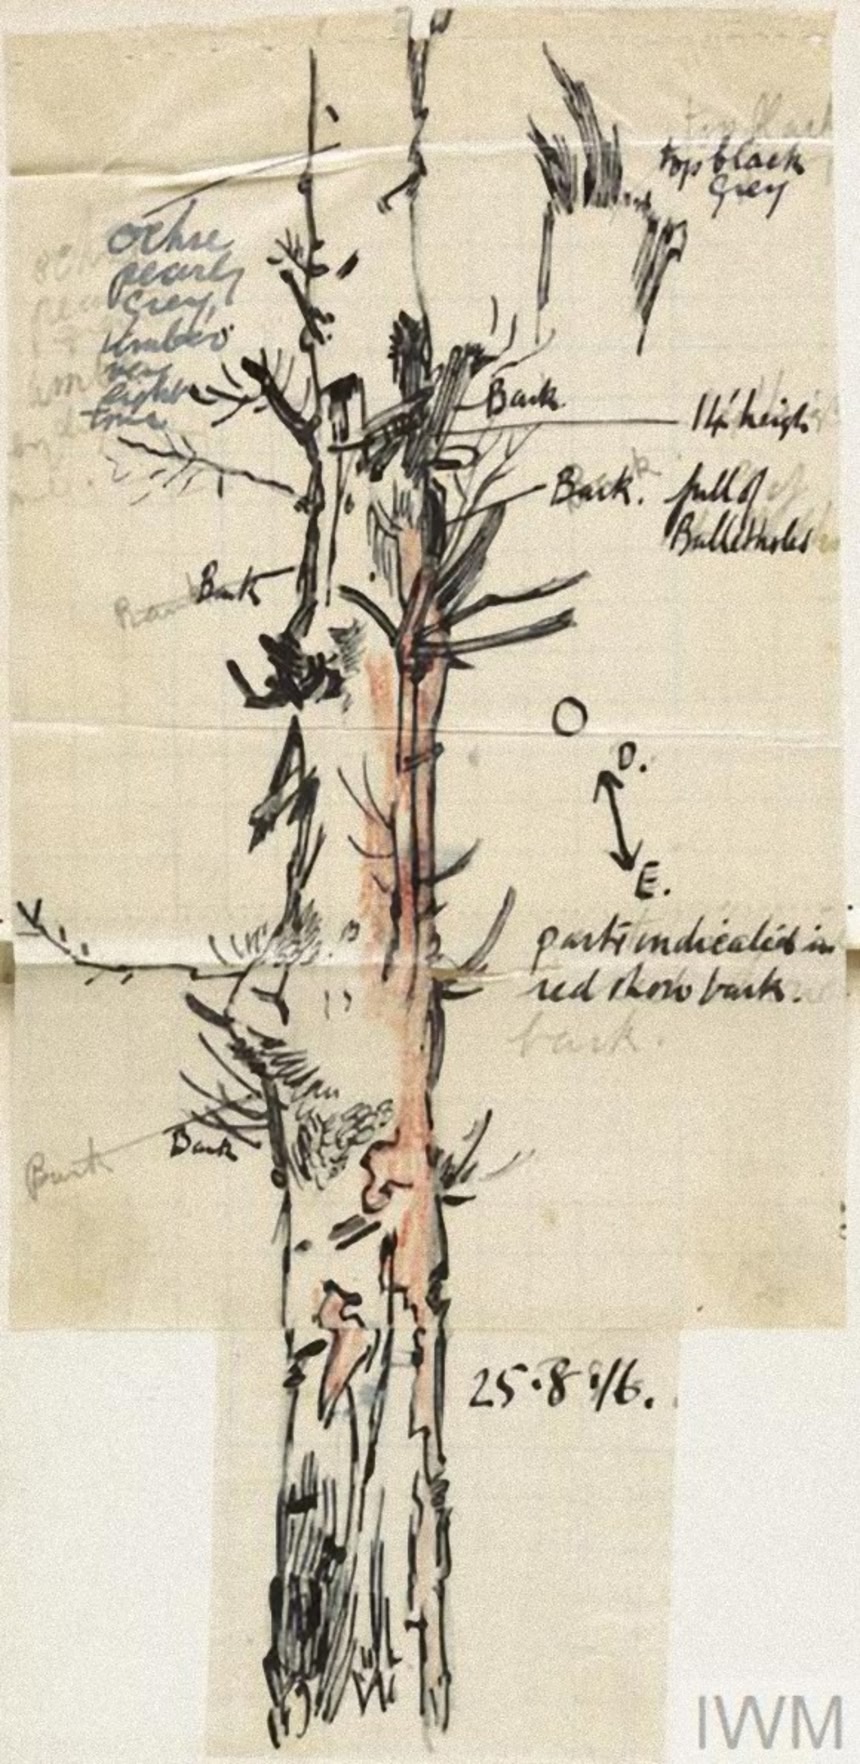 top black
Grey
Ochre
pearly
Grey,
Umber
very
light
tone
Bark
14' high
Bark. full of
Bulletholes
Bark
D.
E.
parts indicated in
red show bark.
bark.
Bark
Bark
25.8.16.
IWM